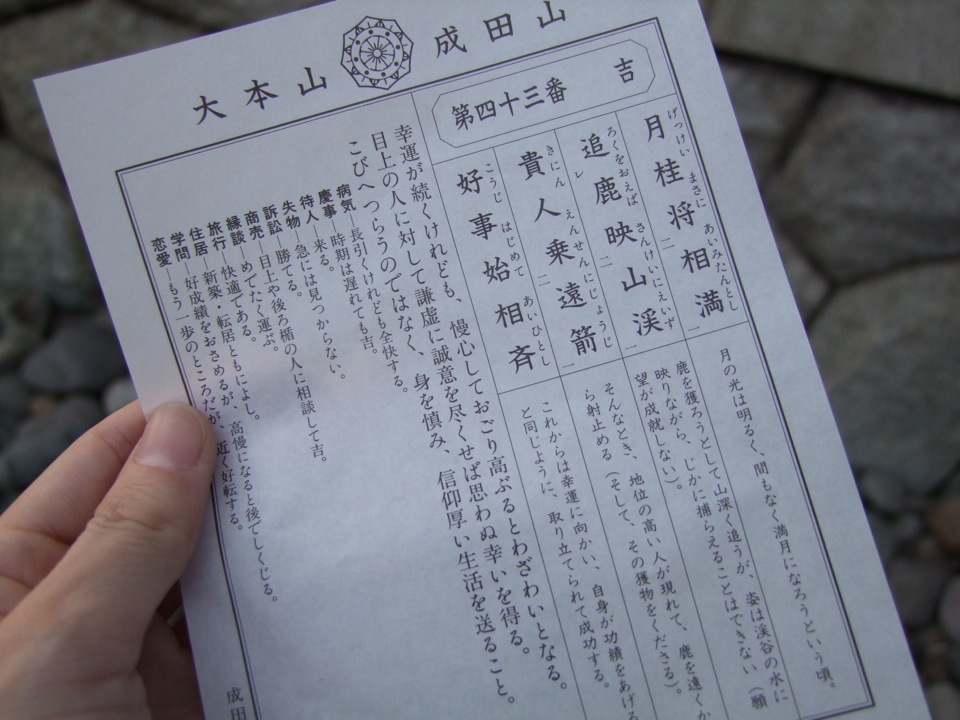 大本山 成田山
第四十三番 吉
月桂将相満
げっけい まさに あいみたんとし
二 一
月の光は明るく、間もなく満月になろうという頃。
追鹿映山渓
ろくをおえば さんけいにえいず
レ 二 一
鹿を獲ろうとして山深く追うが、姿は渓谷の水に
映りながら、じかに捕らえることはできない（願
望が成就しない）。
貴人乗遠箭
きにん えんせんにじょうじ
二 一
そんなとき、地位の高い人が現れて、鹿を遠くか
ら射止める（そして、その獲物をくださる）。
好事始相斉
こうじ はじめて あいひとし
これからは幸運に向かい、自身が功績をあげる
と同じように、取り立てられて成功する。
幸運が続くけれども、慢心しておごり高ぶるとわざわいとなる。
目上の人に対して謙虚に誠意を尽くせば思わぬ幸いを得る。
こびへつらうのではなく、身を慎み、信仰厚い生活を送ること。
病気―長引くけれども全快する。
慶事―時期は遅れても吉。
待人―来る。
失物―急には見つからない。
訴訟―勝てる。
商売―目上や後ろ楯の人に相談して吉。
縁談―めでたく運ぶ。
旅行―快適である。
住居―新築・転居ともによし。
学問―好成績をおさめるが、高慢になると後でしくじる。
恋愛―もう一歩のところだが、近く好転する。
成田